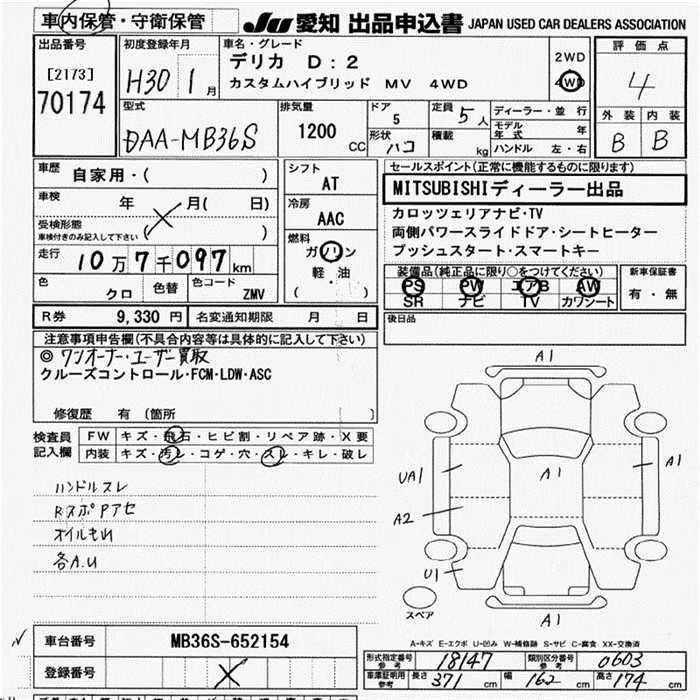 車内保管・守衛保管
JU 愛知 出品申込書 JAPAN USED CAR DEALERS ASSOCIATION
出品番号
[2173]
70174
初度登録年月
H30 1 月
車名・グレード
デリカ D:2
カスタムハイブリッド MV 4WD
2WD
4WD
評価点
4
外装 内装
B B
型式
DAA-MB36S
排気量
1200
CC
ドア
5
定員
5 人
形状
ハコ
積載
kg
ディーラー・並行
モデル年式 年
ハンドル 左・右
車歴
自家用・( )
車検
年 月( 日)
受検形態
車検付きのみ記入して下さい
( )
走行
10万7千097km
色
クロ
色替
色コード
ZMV
シフト
AT
冷房
AAC
燃料
ガソリン
軽・油
( )
セールスポイント(正常に機能するものに限ります)
MITSUBISHIディーラー出品
カロッツェリアナビ・TV
両側パワースライドドア・シートヒーター
プッシュスタート・スマートキー
装備品(純正品に限り○をつけてください)
PS PW エアB AW
SR ナビ TV カワシート
新車保証書
有・無
R券 9,330 円 名変通知期限 月 日
後日品
注意事項申告欄(不具合内容等は具体的に記入して下さい)
◎ワンオーナー・ユーザー買取
クルーズコントロール・FCM・LDW・ASC
修復歴 有 〔箇所
検査員記入欄
FW キズ・飛石・ヒビ割・リペア跡・X要
内装 キズ・汚レ・コゲ・穴・スレ・キレ・破レ
ハンドルスレ
RスポPアセ
オイルもれ
各A.U
A1
UA1
A1
A1
A2
U1
スペア
A1
A-キズ E-エクボ U-凹み W-補修跡 S-サビ C-腐食 XX-交換済
車台番号 MB36S-652154
登録番号
形式指定番号参考 18147
類別区分番号参考 0603
車庫証明用参考 長さ 371 cm 幅 162 cm 高さ 174 cm